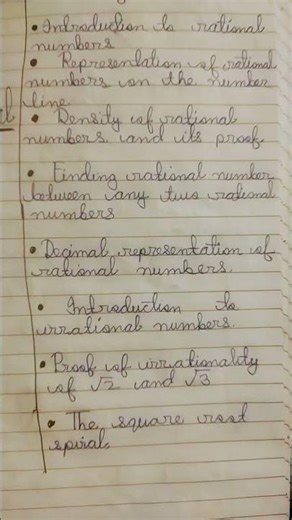 • Introduction to rational
numbers
• Representation of rational
numbers on the number
line.
• Density of rational
numbers and its proof.
• Finding rational number
between any two rational
numbers
• Decimal representation of
rational numbers.
• Introduction to
irrational numbers.
• Proof of irrationality
of √2 and √3
• The square root
spiral.